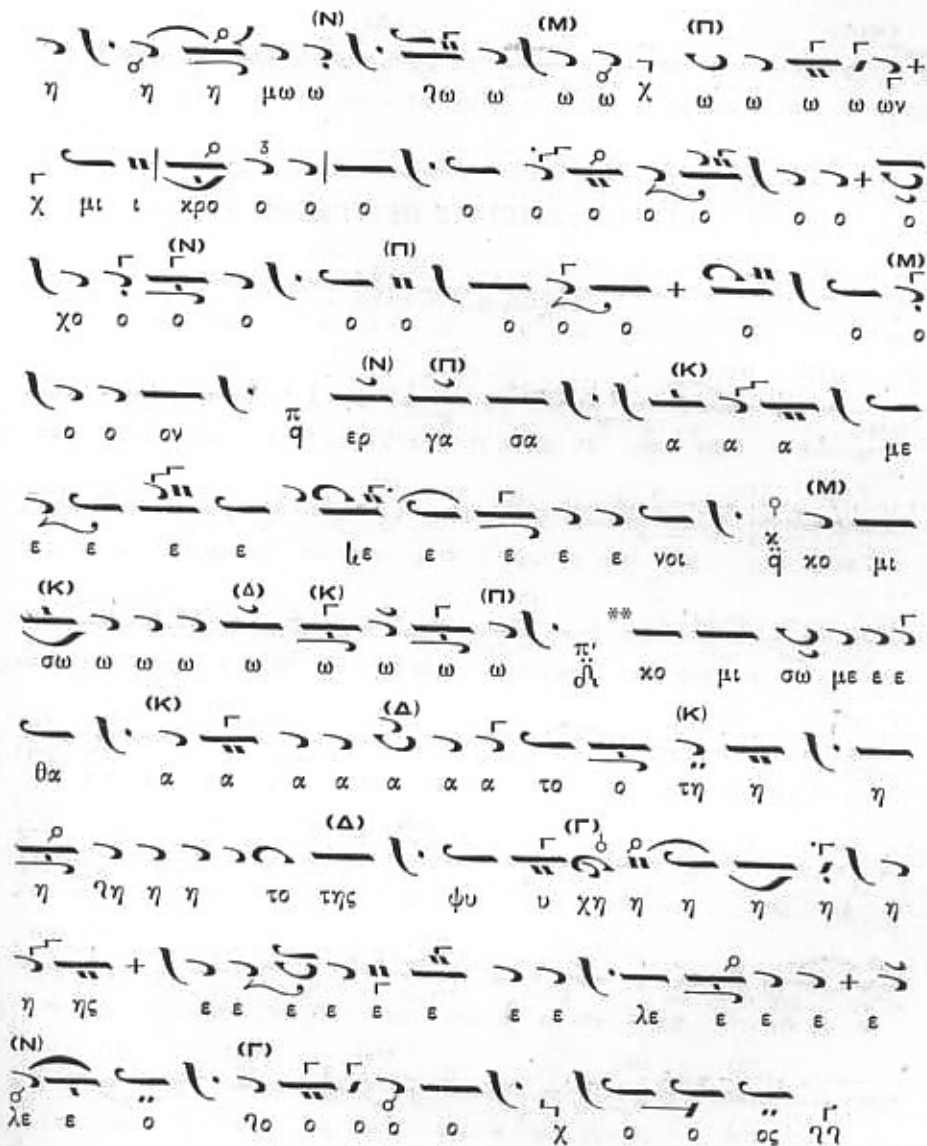 (Ν) (Μ) (Π)
η η η μω ω ʅω ω ω ω χ ω ω ω ω ων
χ μι ι κρο ο ο ο ο ο ο ο ο ο ο ο
(Ν) (Π) (Μ)
χο ο ο ο ο ο ο ο ο ο ο ο
(Ν) (Π) (Κ)
ο ο ον π q ερ γα σα α α α με
(Μ)
ε ε ε ε ε ε ε ε νοι κ q κο μι
(Κ) (Δ) (Κ) (Π)
σω ω ω ω ω ω ω ω ω π' ** κο μι σω με ε ε
(Κ) (Δ) (Κ)
θα α α α α α α α το ο τη η η
(Δ) (Γ)
η ʅη η η το της ψυ υ χη η η η η η
η ης ε ε ε ε ε ε ε ε λε ε ε ε ε
(Ν) (Γ)
λε ε ο ʅο ο ο ο ο χ ο ο ος ʅʅ